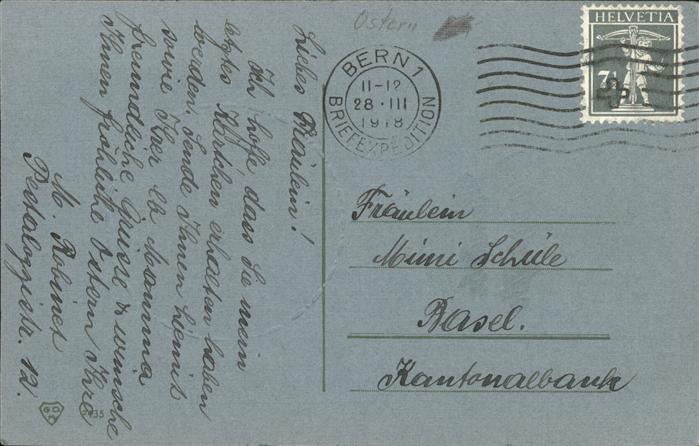 Ostern
BERN 1
11-12
28·III
1918
BRIEFEXPEDITION
HELVETIA
7½
Liebes Fräulein!
Ich hoffe dass Sie mein
letztes Kärtchen erhalten haben
werden. Sende Ihnen hiemit
sowie Ihrer lb Mamma
freundliche Grüsse & wünsche
Ihnen fröhliche Ostern Ihre
M.
Pestalozzistr. 12.
Fräulein
Mimi Schüle
Basel.
Kantonalbank